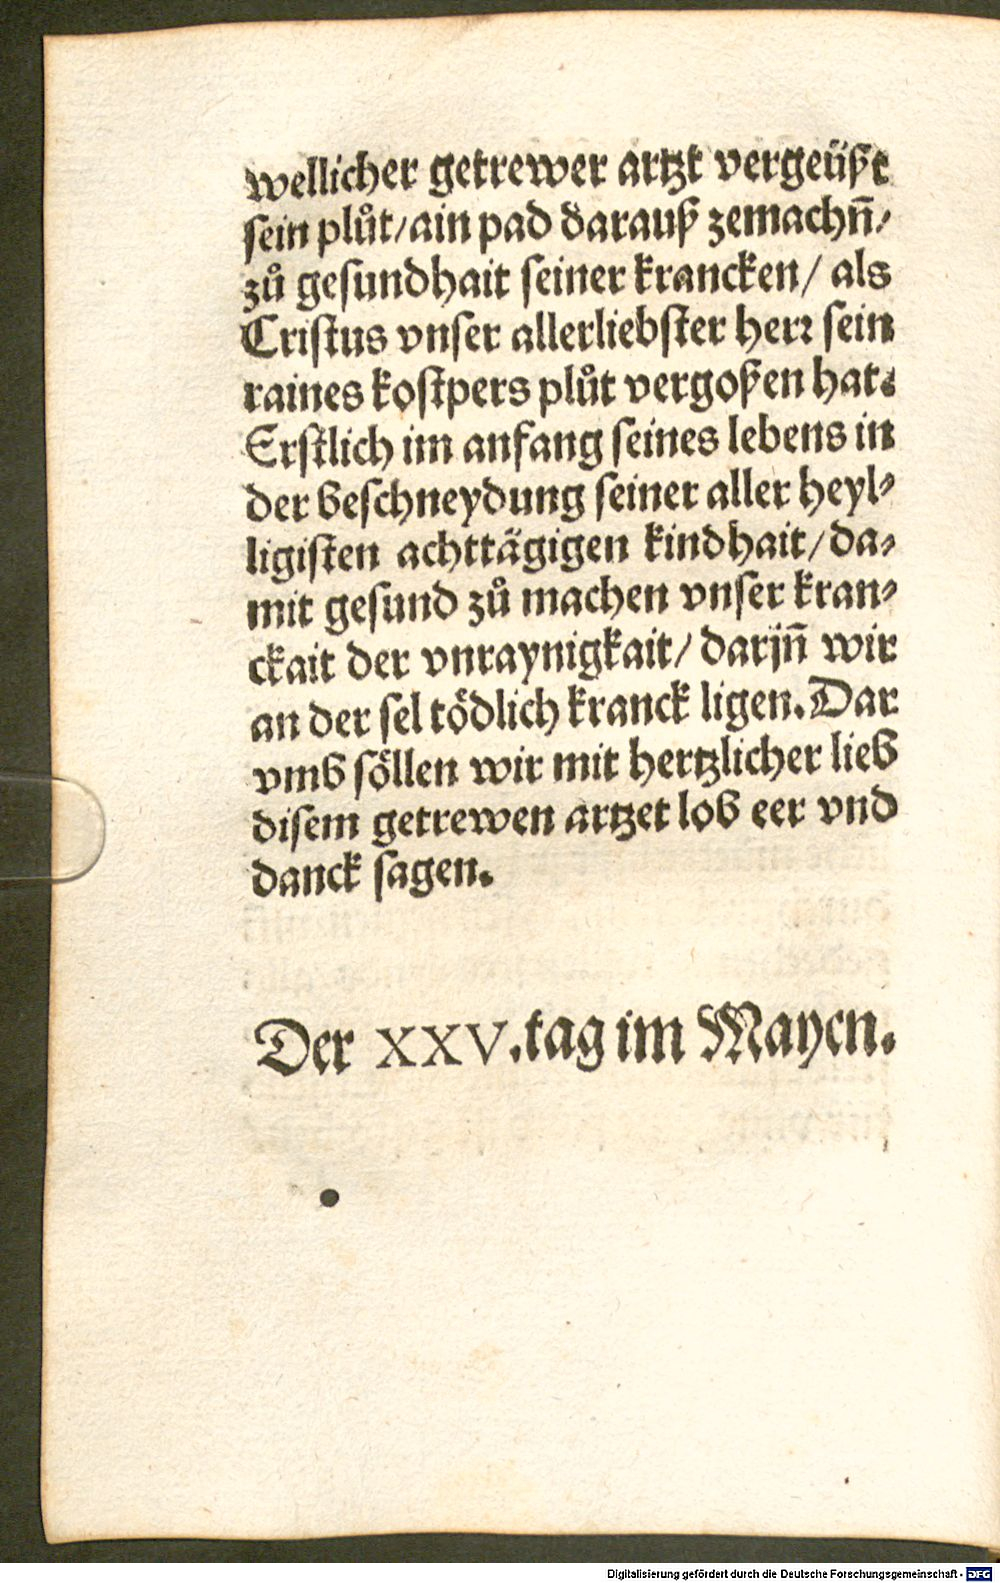 wellicher getrewer artzt vergeüßt
sein plůt/ain pad darauß zemachn̄/
zů gesundhait seiner krancken/ als
Cristus vnser allerliebster herꝛ sein
raines kostpers plůt vergoßen hat.
Erstlich im anfang seines lebens in
der beschneydung seiner aller heyl⸗
ligisten achttägigen kindhait/da⸗
mit gesund zů machen vnser kran⸗
ckait der vnraynigkait/ darjn̄ wir
an der sel tödlich kranck ligen. Dar
vmb söllen wir mit hertzlicher lieb
disem getrewen artzet lob eer vnd
danck sagen.
Der XXV.tag im Mayen.
Digitalisierung gefördert durch die Deutsche Forschungsgemeinschaft - DFG